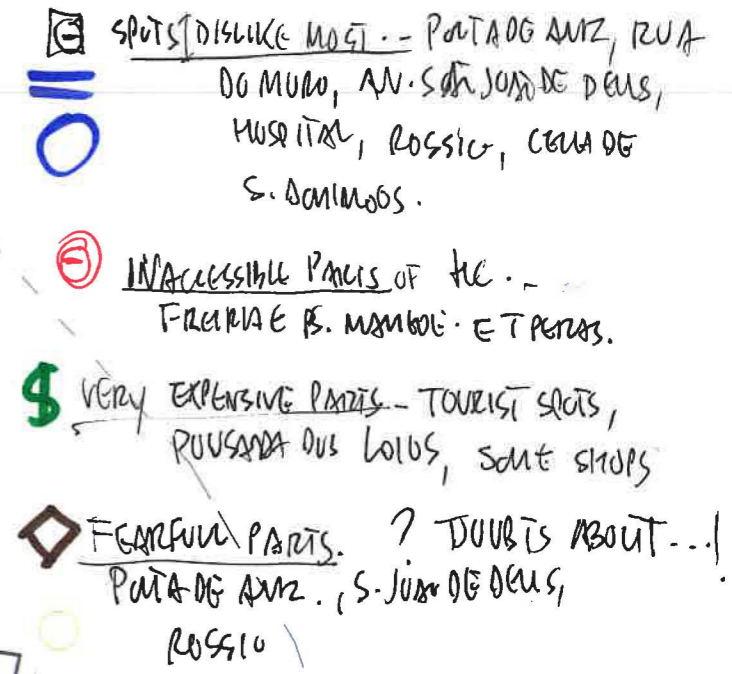 SPOTS I DISLIKE MOST.- PORTA DE AVIZ, RUA
DO MURO, AV. SÃO JOÃO DE DEUS,
HOSPITAL, ROSSIO, CERCA DE
S. DOMINGOS.
INACCESSIBLE PARTS OF THE .-
FREIRIA E
VERY EXPENSIVE PARTS - TOURIST SPOTS,
POUSADA DOS LOIOS, SOME SHOPS
$
FEARFUL PARTS. ? DOUBTS ABOUT...!
PORTA DE AVIZ., S. JOÃO DE DEUS,
ROSSIO